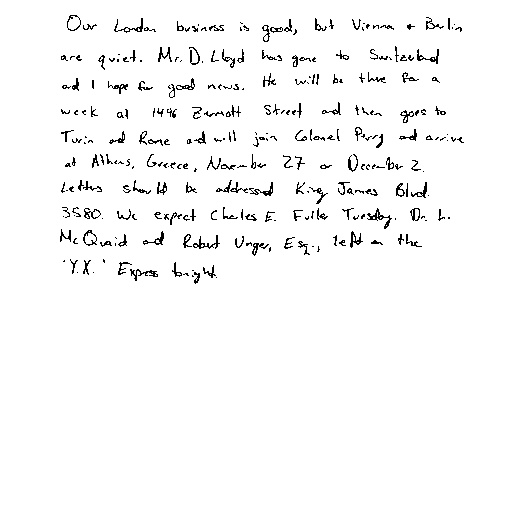 Our London business is good, but Vienna + Berlin
are quiet. Mr. D. Lloyd has gone to Switzerland
and I hope for good news. He will be there for a
week at 1496 Zermott Street and then goes to
Turin and Rome and will join Colonel Parry and arrive
at Athens, Greece, November 27 or December 2.
Letters should be addressed King James Blvd.
3580. We expect Charles E. Fuller Tuesday. Dr. L.
McQuaid and Robert Unger, Esq., left on the
"Y.X." Express tonight.